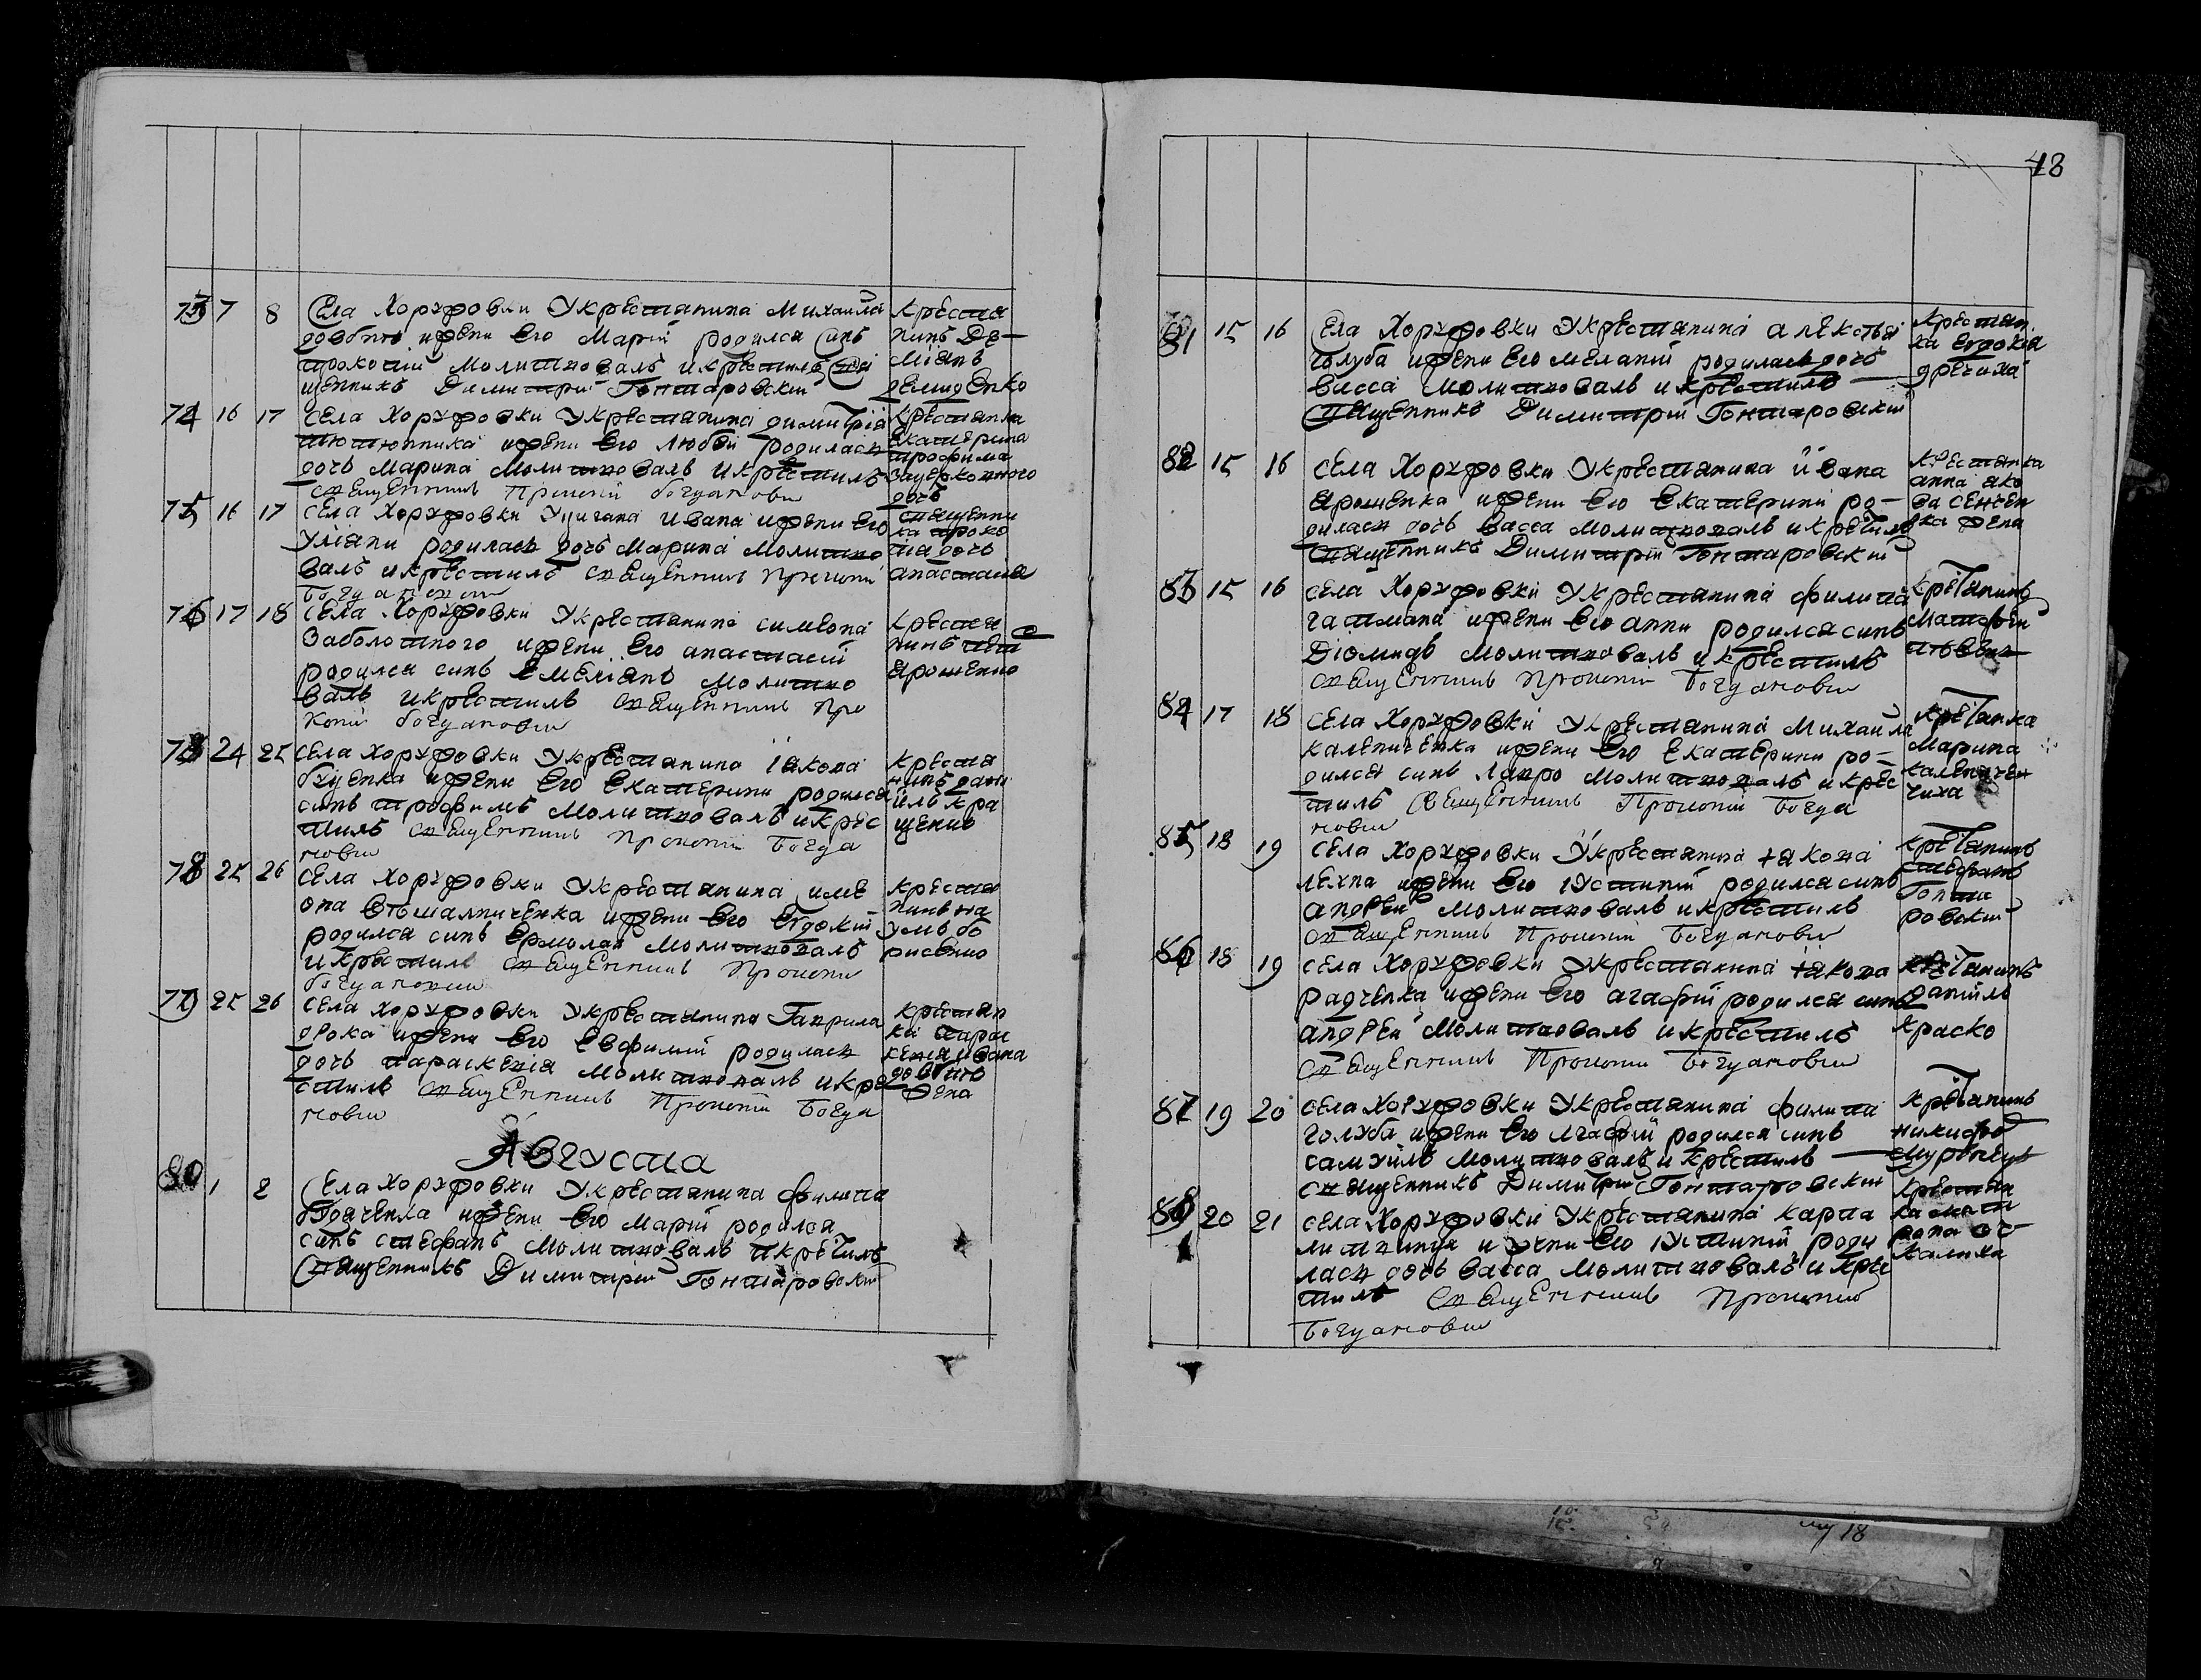 73 7 8 Села Хоружовки Укрестянина Михаила
довбни ижени Его Марїи родился Синъ
прокопїй молитвовалъ икрестилъ Свя
щенникъ Димитрїй Гонтаровскїй
Крестя
нинъ Де-
мїянъ
демидЕнко
74 16 17 Села Хоружовки Укрестянина димитрїя
тютюнника ижени Его Любви родилась
дочь Марина Молитвовалъ Икрестилъ
священникъ Прокопїй богданович
Крестянка
Екатерина
трофима
дочь
75 16 17 Села Хоружовки Уцигана Ивана ижени Его
Улїяни родилась дочь Марина Молитво
валъ икрестилъ священникъ Прокопїй
Богданович
священни
ка проко
пїя дочь
анастасїя
76 17 18 Села Хоружовки Укрестянина симеона
Заболотного ижени Его анастасїи
родился синъ Емелїянъ молитво
валъ икрестилъ священникъ Про
копїй богданович
Крестя
нинъ
ярошенко
24 25 Села Хоружовки Укрестянина Iакова
ижени Его Екатерини родился
синъ трофимъ молитвовалъ икрес
тилъ священникъ Прокопїй Богда
нович
крестя
нинъ дани
илъ кра
78 25 26 Села Хоружовки Укрестянина симе
она ижени Его Евдокїи
родился синъ Ермолай молитвовалъ
икрестилъ священникъ Прокопїй
богданович
крестя
нинъ на
умъ бо
рисенко
79 25 26 Села Хоружовки Укрестянина Гаврила
дрока ижени Его Евфимїи родилась
дочь параскевїя молитвовалъ икре
стилъ священникъ Прокопїй Богда
нович
крестян
ка парас
кевїя ивана
довбни
жена
Августа
80 1 2 Села Хоружовки Укрестянина филипа
ижени Его Марїи родился
синъ стефанъ молитвовалъ икрестилъ
Священникъ Димитрїй Гонтаровскїй
48
81 15 16 Села Хоружовки Укрестянина алексея
голуба ижени Его меланїи родилась дочь
васса молитвовалъ икрестилъ
Священникъ Димитрїй Гонтаровскїй
крестян
ка Евдокїя
82 15 16 Села Хоружовки Укрестянина Ивана
ярошенка ижени Его Екатерини ро-
дилась дочь васса молитвовалъ икрестилъ
Священникъ Димитрїй Гонтаровскїй
крестянка
анна яко
ва
жена
83 15 16 Села Хоружовки Укрестянина филипа
ижени Его анни родился синъ
Дїомидъ молитвовалъ икрестилъ
священникъ Прокопїй Богданович
крестянинъ
матфей
84 17 18 Села Хоружовки Укрестянина Михаила
каленичЕнка ижени Его Екатерини ро-
дился синъ Лавро молитвовалъ икрес
тилъ священникъ Прокопїй Богда
нович
крестянка
Марина
каленичен
чиха
85 18 19 Села Хоружовки Укрестянина якова
лехна ижени Его Iустинїи родился синъ
андрей молитвовалъ икрестилъ
священникъ Прокопїй Богданович
крестянинъ
стефанъ
Гонта
ровскїй
86 18 19 Села Хоружовки Укрестянина якова
радченка ижени Его агафїи родился синъ
андрей молитвовалъ икрестилъ
священникъ Прокопїй Богданович
крестянинъ
данїилъ
краско
87 19 20 Села Хоружовки Укрестянина филипа
голуба ижени Его агафїи родился синъ
самуилъ молитвовалъ икрестилъ
священникъ Димитрїй Гонтаровскїй
крестянинъ
никифоръ
20 21 Села Хоружовки Укрестянина карпа
литвинца ижени Его Iустинїи роди
лась дочь васса молитвовалъ икре
тилъ Священникъ Прокопїй
Богданович
крестян
ка